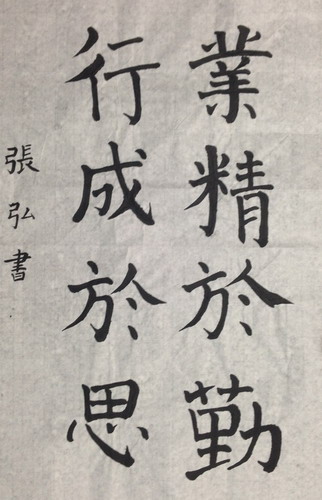 業精於勤
行成於思
張弘書